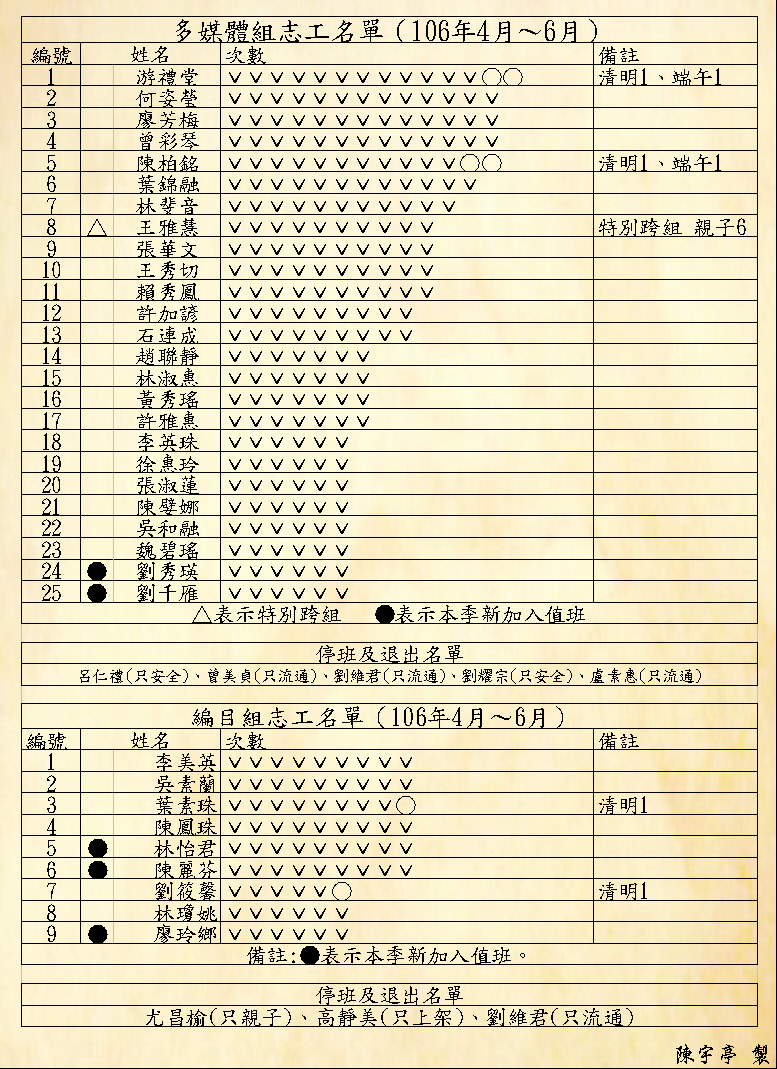 多媒體組志工名單（106年4月～6月）
編號 姓名 次數 備註
1 游禮堂 ∨∨∨∨∨∨∨∨∨∨∨∨○○ 清明1、端午1
2 何姿瑩 ∨∨∨∨∨∨∨∨∨∨∨∨∨
3 廖芳梅 ∨∨∨∨∨∨∨∨∨∨∨∨∨
4 曾彩琴 ∨∨∨∨∨∨∨∨∨∨∨∨∨
5 陳柏銘 ∨∨∨∨∨∨∨∨∨∨∨○○ 清明1、端午1
6 葉錦融 ∨∨∨∨∨∨∨∨∨∨∨∨
7 林斐音 ∨∨∨∨∨∨∨∨∨∨∨
8 △ 王雅慧 ∨∨∨∨∨∨∨∨∨∨ 特別跨組 親子6
9 張華文 ∨∨∨∨∨∨∨∨∨∨
10 王秀切 ∨∨∨∨∨∨∨∨∨∨
11 賴秀鳳 ∨∨∨∨∨∨∨∨∨∨
12 許加諺 ∨∨∨∨∨∨∨∨∨
13 石連成 ∨∨∨∨∨∨∨∨∨
14 趙聯靜 ∨∨∨∨∨∨∨
15 林淑惠 ∨∨∨∨∨∨∨
16 黃秀瑤 ∨∨∨∨∨∨∨
17 許雅惠 ∨∨∨∨∨∨∨
18 李英珠 ∨∨∨∨∨∨
19 徐惠玲 ∨∨∨∨∨∨
20 張淑蓮 ∨∨∨∨∨∨
21 陳嬖娜 ∨∨∨∨∨∨
22 吳和融 ∨∨∨∨∨∨
23 魏碧瑤 ∨∨∨∨∨∨
24 ● 劉秀瑛 ∨∨∨∨∨∨
25 ● 劉千雁 ∨∨∨∨∨∨
△表示特別跨組 ●表示本季新加入值班
停班及退出名單
呂仁禮(只安全)、曾美貞(只流通)、劉維君(只流通)、劉耀宗(只安全)、盧素惠(只流通)
編目組志工名單（106年4月～6月）
編號 姓名 次數 備註
1 李美英 ∨∨∨∨∨∨∨∨∨
2 吳素蘭 ∨∨∨∨∨∨∨∨∨
3 葉素珠 ∨∨∨∨∨∨∨∨○ 清明1
4 陳鳳珠 ∨∨∨∨∨∨∨∨∨
5 ● 林怡君 ∨∨∨∨∨∨∨∨∨
6 ● 陳麗芬 ∨∨∨∨∨∨∨∨∨
7 劉筱馨 ∨∨∨∨∨○ 清明1
8 林瓊姚 ∨∨∨∨∨∨
9 ● 廖玲鄉 ∨∨∨∨∨∨
備註:●表示本季新加入值班。
停班及退出名單
尤昌榆(只親子)、高靜美(只上架)、劉維君(只流通)
陳宇亭 製